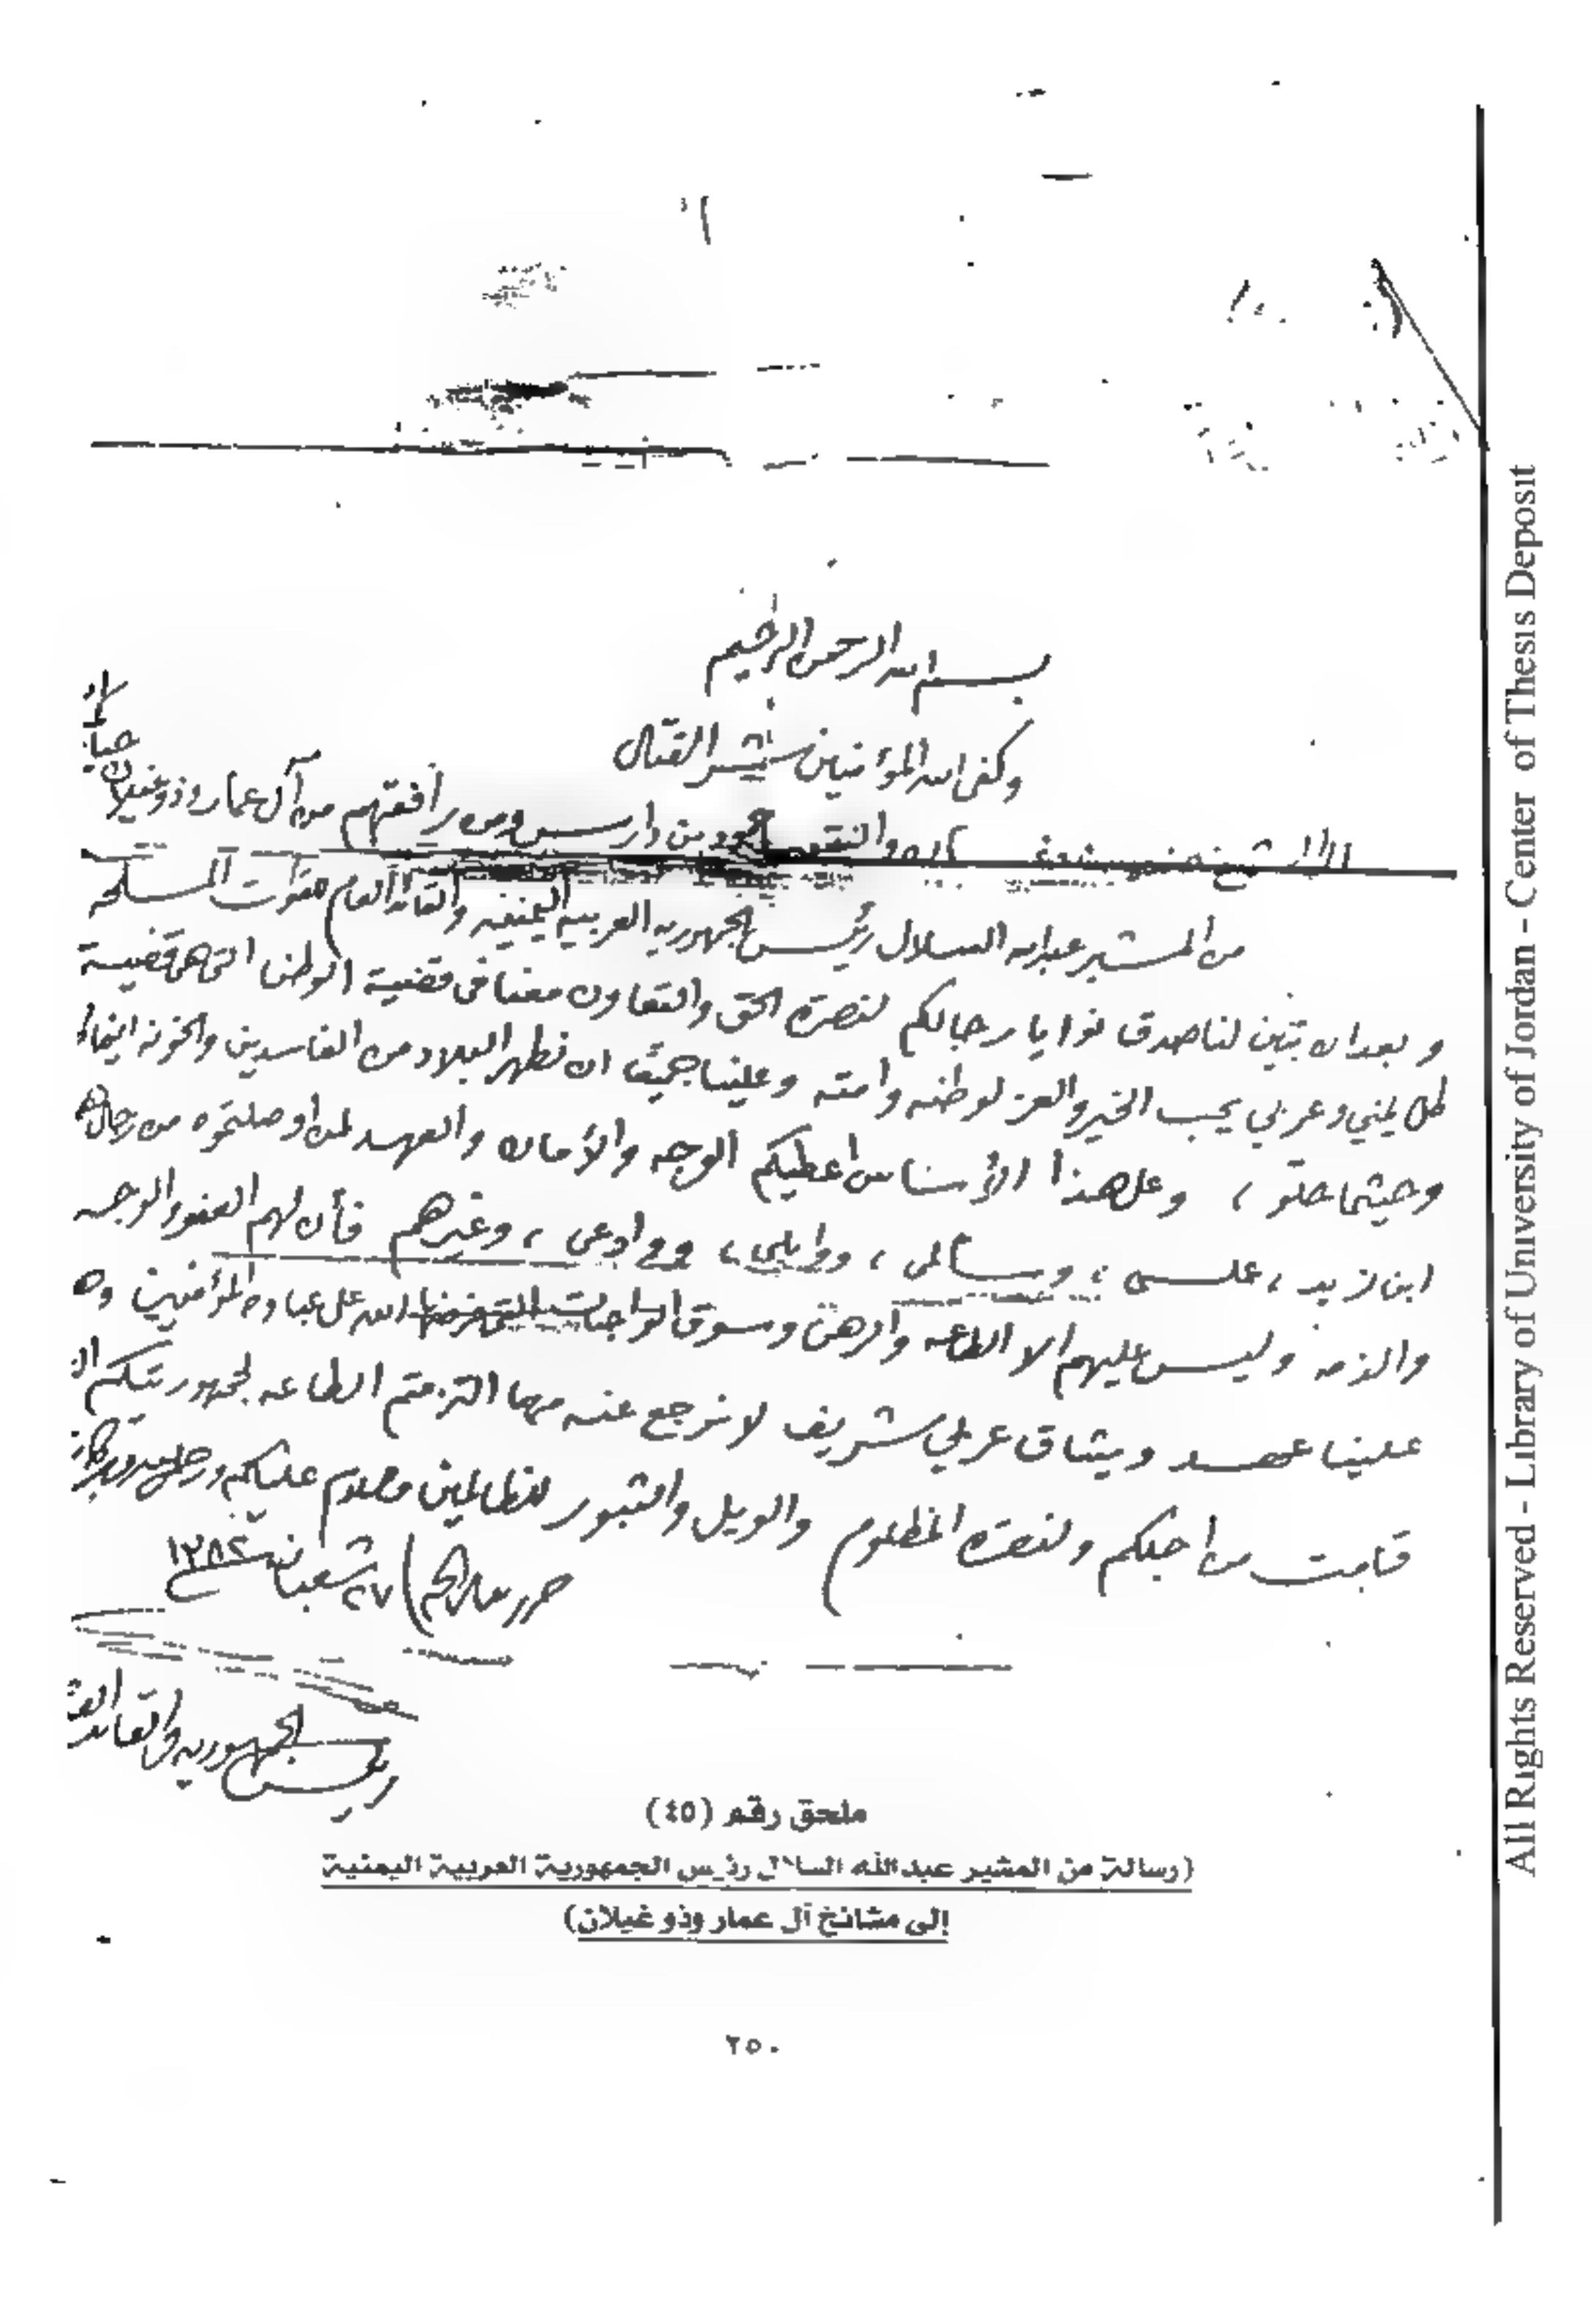 بسم الله الرحمن الرحيم
وكفى الله المؤمنين شر القتال
الى الشيخ والنقيب حمود بن دارس ومن رافقتهم من آل عمار وذو غيلان
حياكم
من المشير عبدالله السلال رئيس الجمهوريه العربيه اليمنيه والقائد العام للقوات المسلحه
وبعد ان تبين لنا صدق نوايا رجالكم لنصرة الحق والتعاون معنا في قضية الوطن التي هي قضية
كل يمني وعربي يحب الخير والعز لوطنه وامته وعلينا جميعًا ان نطهر البلاد من الفاسدين والخونه اينما
وحيثما حلو ، وعلى هذا الأساس اعطيكم الوجه والأمان والعهد لمن اوصلتموه من رجال
ابن زيد ، علسى ، وسالمى ، ووايلى ، ووادعى ، وغيرهم فأن لهم العفو والوجه
والذمه وليس عليهم الا الطاعه والرهن وسوق الواجبات التي فرضها الله على عباده المؤمنين
علينا عهد وميثاق عربي شريف لا نرجع عنه مهما التزمتم الطاعه لجمهوريتكم
قامت من اجلكم ولنصرة المظلوم والويل والثبور للظالمين وسلام عليكم
حرر ٢٧ شعبان سنة ١٣٨٢
رئيس الجمهوريه والقائد
ملحق رقم (٤٥)
(رسالة من المشير عبدالله السلال رئيس الجمهورية العربية اليمنية
إلى مشائخ آل عمار وذو غيلان)
٢٥٠
All Rights Reserved - Library of University of Jordan - Center of Thesis Deposit